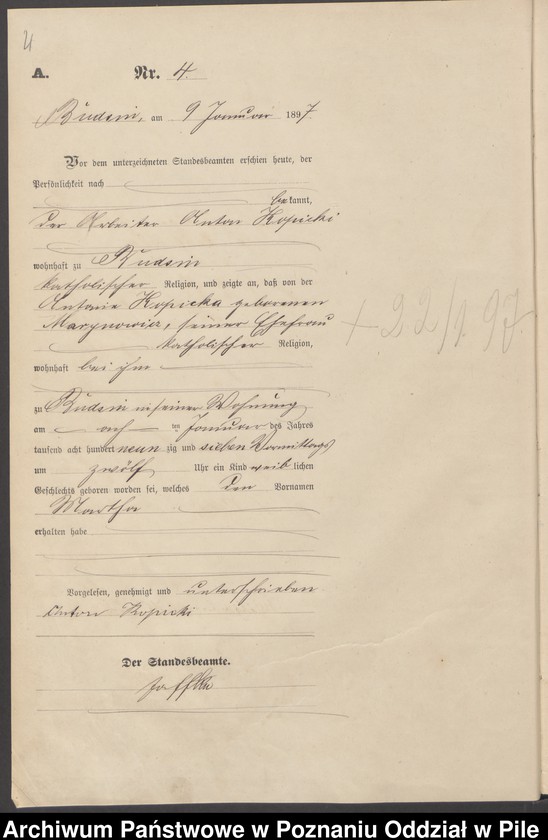 4
A. Nr. 4.
am 9 Januar 1897.
Vor dem unterzeichneten Standesbeamten erschien heute, der
Persönlichkeit nach
bekannt,
der Arbeiter Anton Kopicki
wohnhaft zu
katholischer Religion, und zeigte an, daß von der
Antonie Kopicka geborenen
Marynowicz, seiner Ehefrau
katholischer Religion,
wohnhaft bei ihm
zu in seiner Wohnung
am acht ten Januar des Jahres
tausend acht hundert neun zig und sieben Vormittags
um zwölf Uhr ein Kind weib lichen
Geschlechts geboren worden sei, welches den Vornamen
Martha
erhalten habe
Vorgelesen, genehmigt und unterschrieben
Anton Kopicki
Der Standesbeamte.
+ 22/1. 97.
Archiwum Państwowe w Poznaniu Oddział w Pile